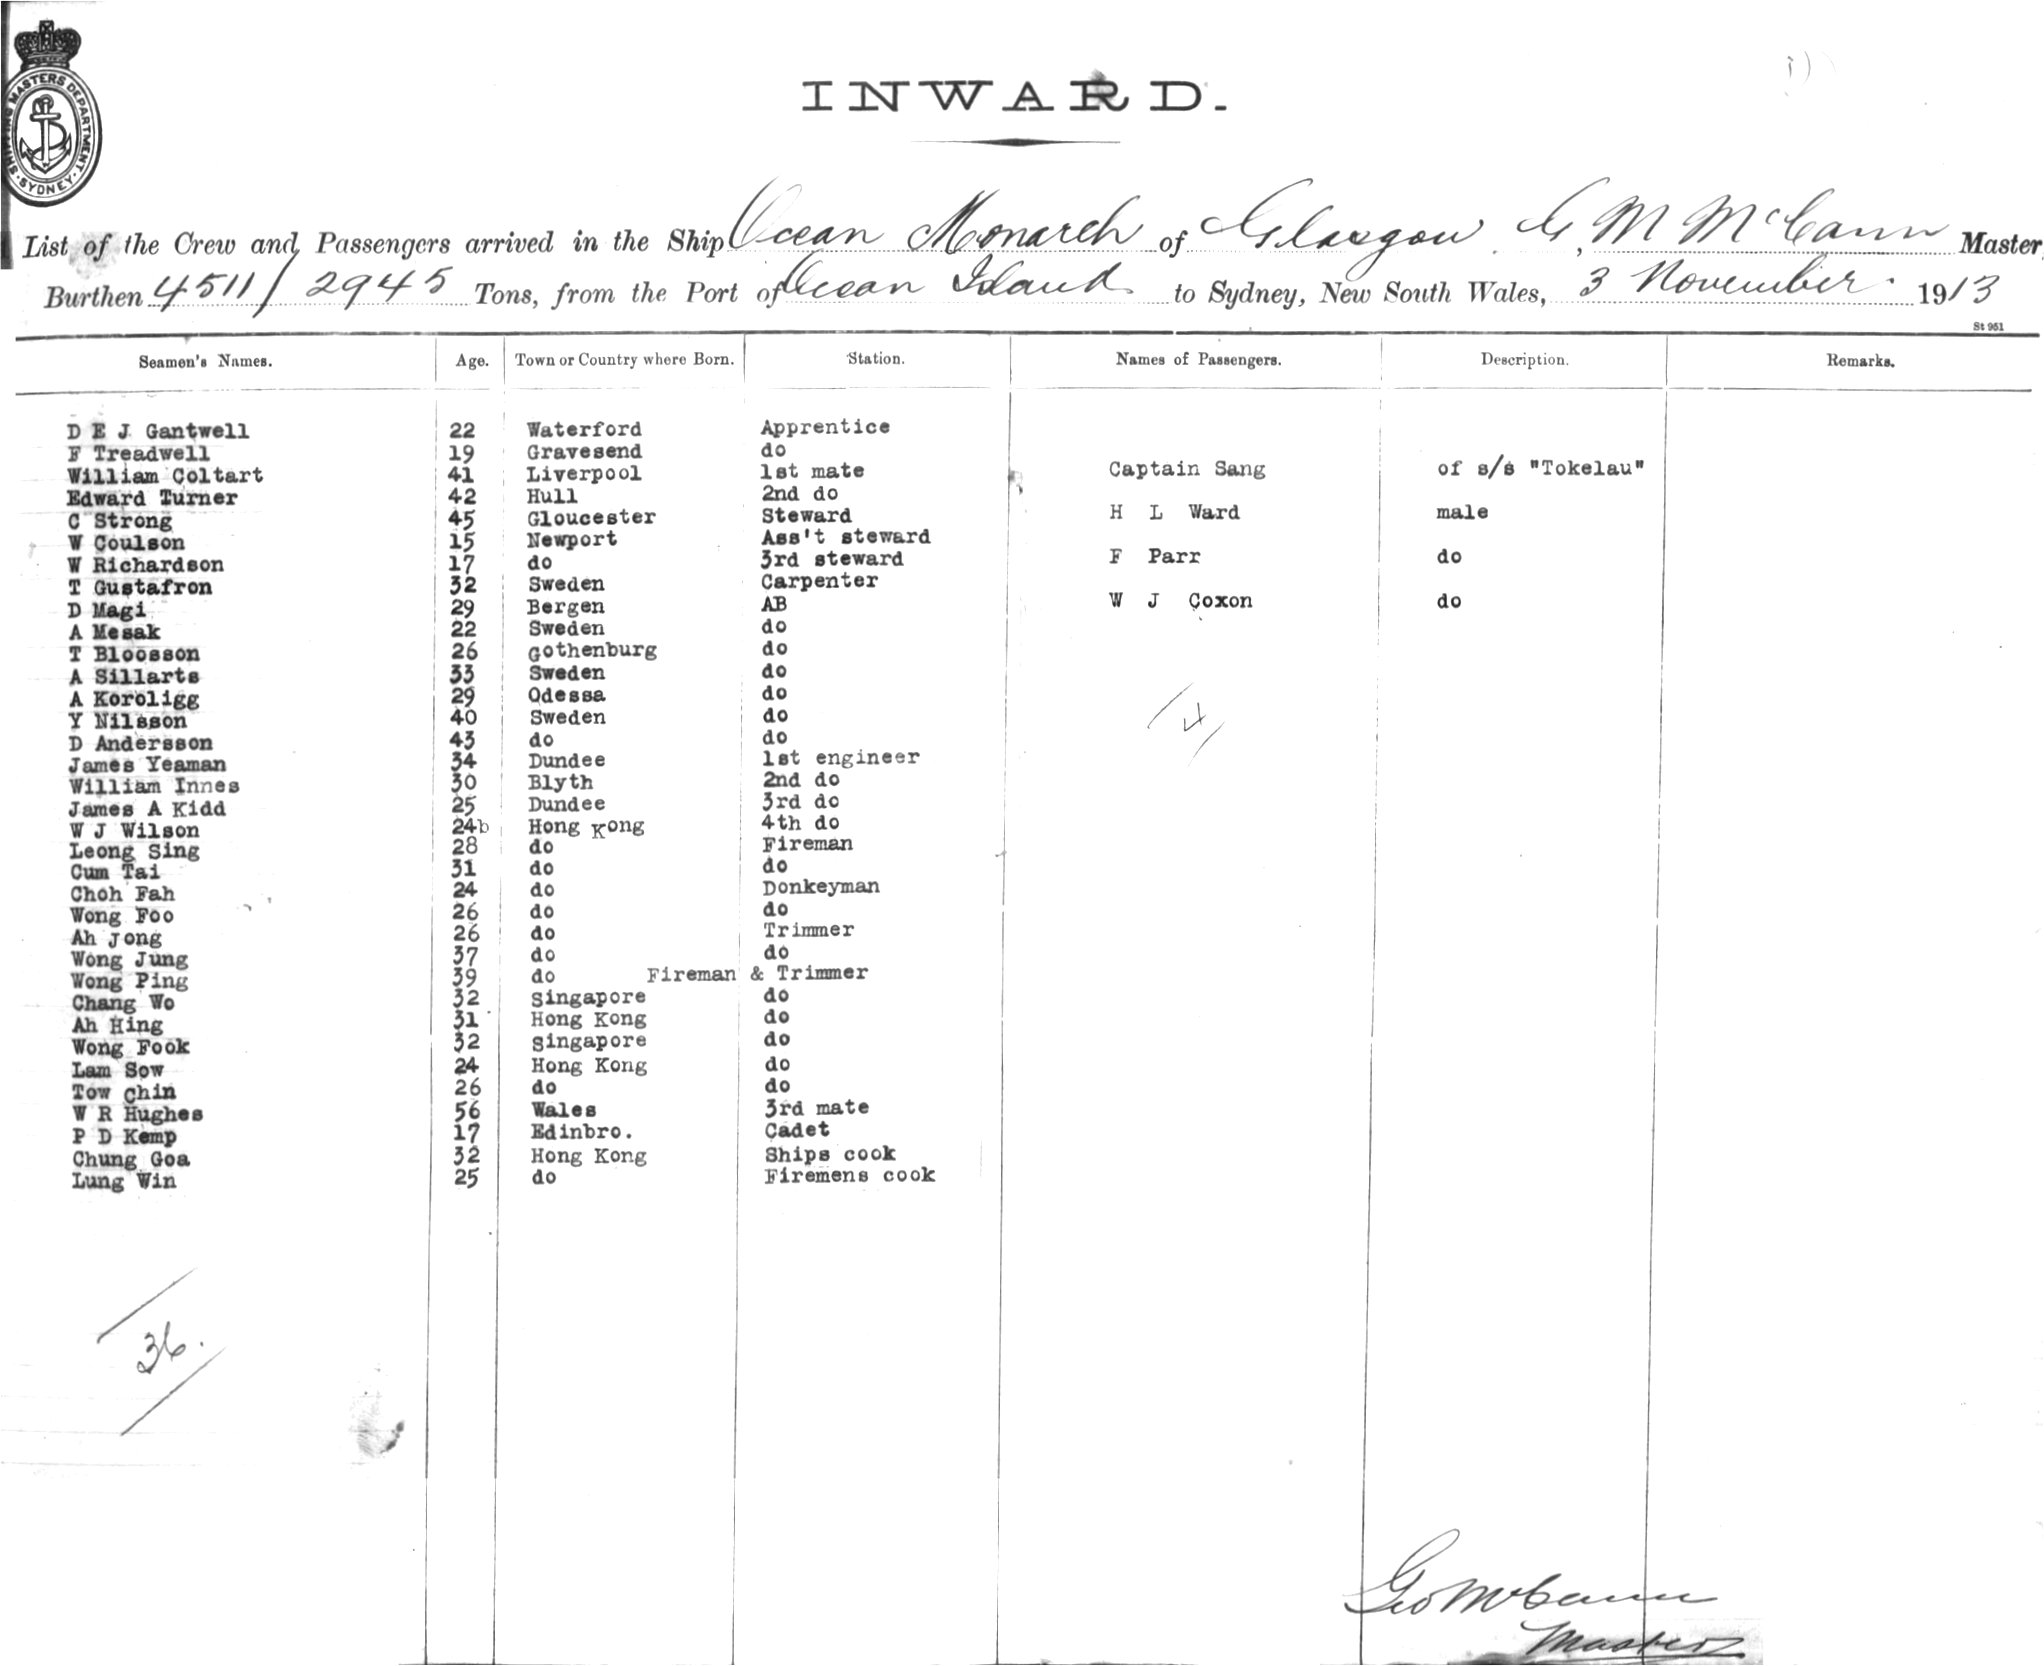 SHIPPING MASTERS DEPARTMENT. SYDNEY.
INWARD.
List of the Crew and Passengers arrived in the Ship Ocean Monarch of Glasgow, G. M McCann Master,
Burthen 4511/2945 Tons, from the Port of Ocean Island to Sydney, New South Wales, 3 November 1913
St 951
Seamen's Names. Age. Town or Country where Born. Station. Names of Passengers. Description. Remarks.
D E J Gantwell 22 Waterford Apprentice
F Treadwell 19 Gravesend do
William Coltart 41 Liverpool 1st mate Captain Sang of s/s "Tokelau"
Edward Turner 42 Hull 2nd do
C Strong 45 Gloucester Steward H L Ward male
W Coulson 15 Newport Ass't steward
W Richardson 17 do 3rd steward F Parr do
T Gustafron 32 Sweden Carpenter
D Magi 29 Bergen AB W J Coxon do
A Mesak 22 Sweden do
T Bloosson 26 Gothenburg do
A Sillarts 33 Sweden do
A Koroligg 29 Odessa do
Y Nilsson 40 Sweden do
D Andersson 43 do do
James Yeaman 34 Dundee 1st engineer
William Innes 30 Blyth 2nd do
James A Kidd 25 Dundee 3rd do
W J Wilson 24b Hong Kong 4th do
Leong Sing 28 do Fireman
Cum Tai 31 do do
Choh Fah 24 do Donkeyman
Wong Foo 26 do do
Ah Jong 26 do Trimmer
Wong Jung 37 do do
Wong Ping 39 do Fireman & Trimmer
Chang Wo 32 Singapore do
Ah Hing 31 Hong Kong do
Wong Fook 32 Singapore do
Lam Sow 24 Hong Kong do
Tow Chin 26 do do
W R Hughes 56 Wales 3rd mate
P D Kemp 17 Edinbro. Cadet
Chung Goa 32 Hong Kong Ships cook
Lung Win 25 do Firemens cook
36.
Geo McCann
Master